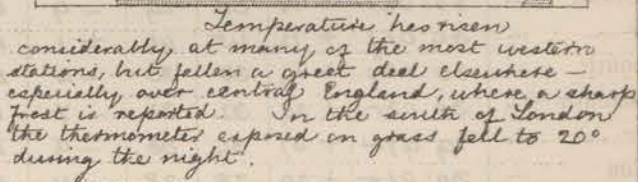 Temperature has risen
considerably at many of the most western
stations, but fallen a great deal elsewhere —
especially over central England, where a sharp
frost is reported. In the south of London
the thermometer exposed on grass fell to 20°
during the night.